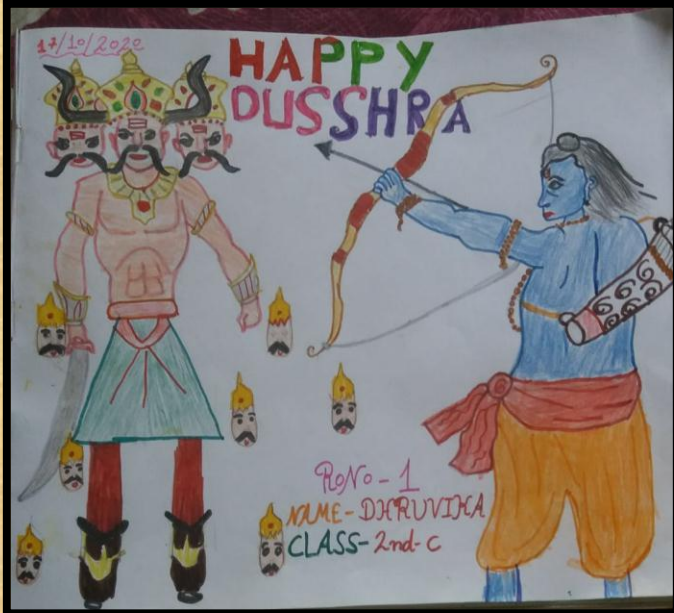 17/10/2020
HAPPY
DUSSHRA
RoNo - 1
NAME - DHRUVIKA
CLASS - 2nd - C